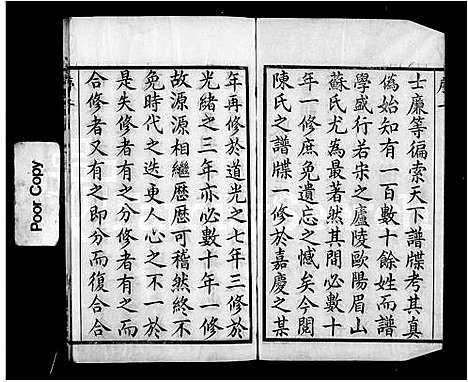 士廉等徧索天下譜牒考其真
偽始知有一百數十餘姓而譜
學盛行若宋之廬陵歐陽眉山
蘇氏尤為最著然其間必數十
年一修庶免遺忘之憾矣今閱
陳氏之譜牒一修於嘉慶之某
年再修於道光之七年三修於
光緒之三年亦必數十年一修
故源源相繼歷歷可稽然終不
免時代之迭更人心之不一於
是失修有之分修者有之而
合修者又有之即分而復合合
Poor Copy